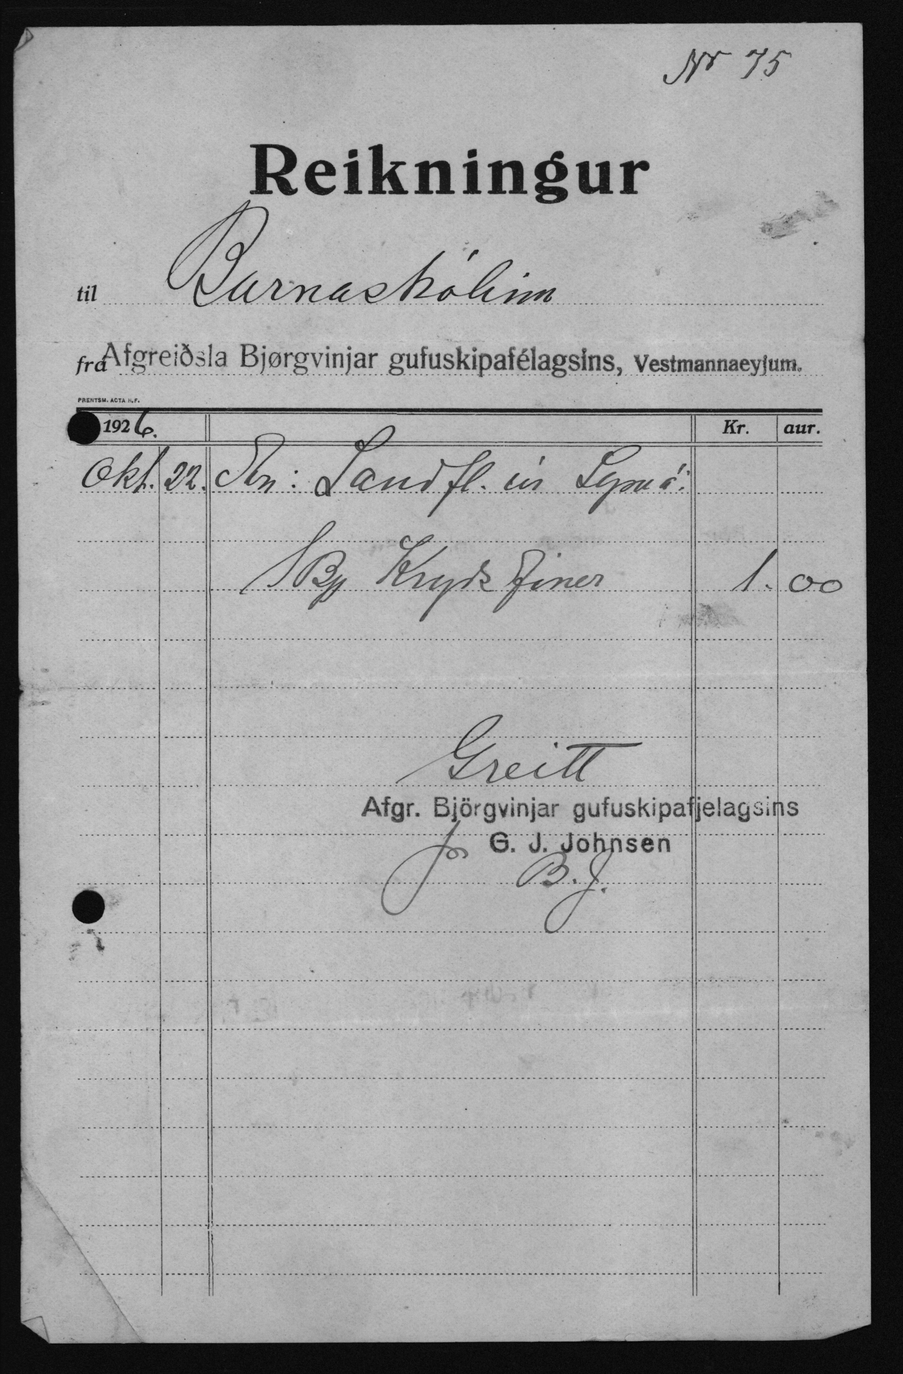 Nr 75
Reikningur
til Barnaskólinn
frá Afgreiðsla Bjørgvinjar gufuskipafélagsins, Vestmannaeyjum.
PRENTSM. ACTA H.F.
1926. Kr. aur.
Okt. 22. An: Landfl. úr Lyru:
1 Bp Krydsfiner 1.00
Greitt
Afgr. Björgvinjar gufuskipafjelagsins
G. J. Johnsen
B. J.